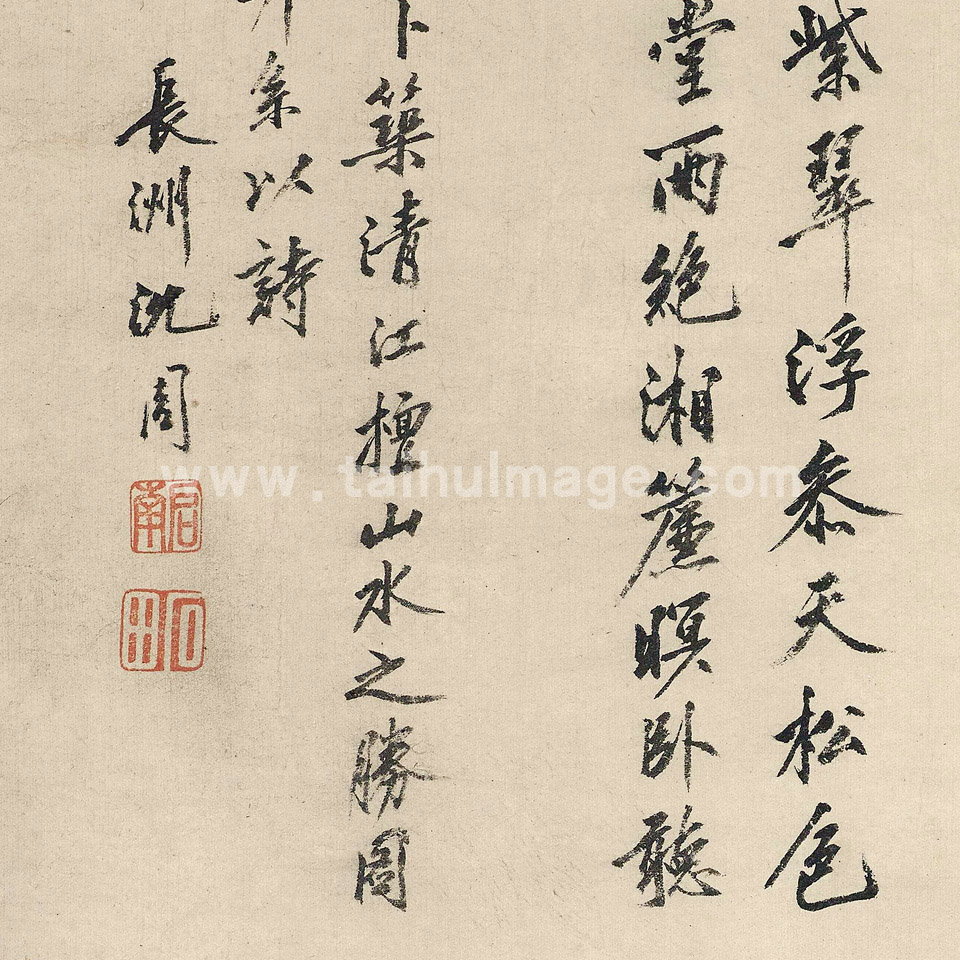 紫翠浮參天松色
堂雨絕湘簾暝臥聽
卜築清江擅山水之勝圖
并系以詩
長洲沈周
啟南
石田
www.taihuImage.com